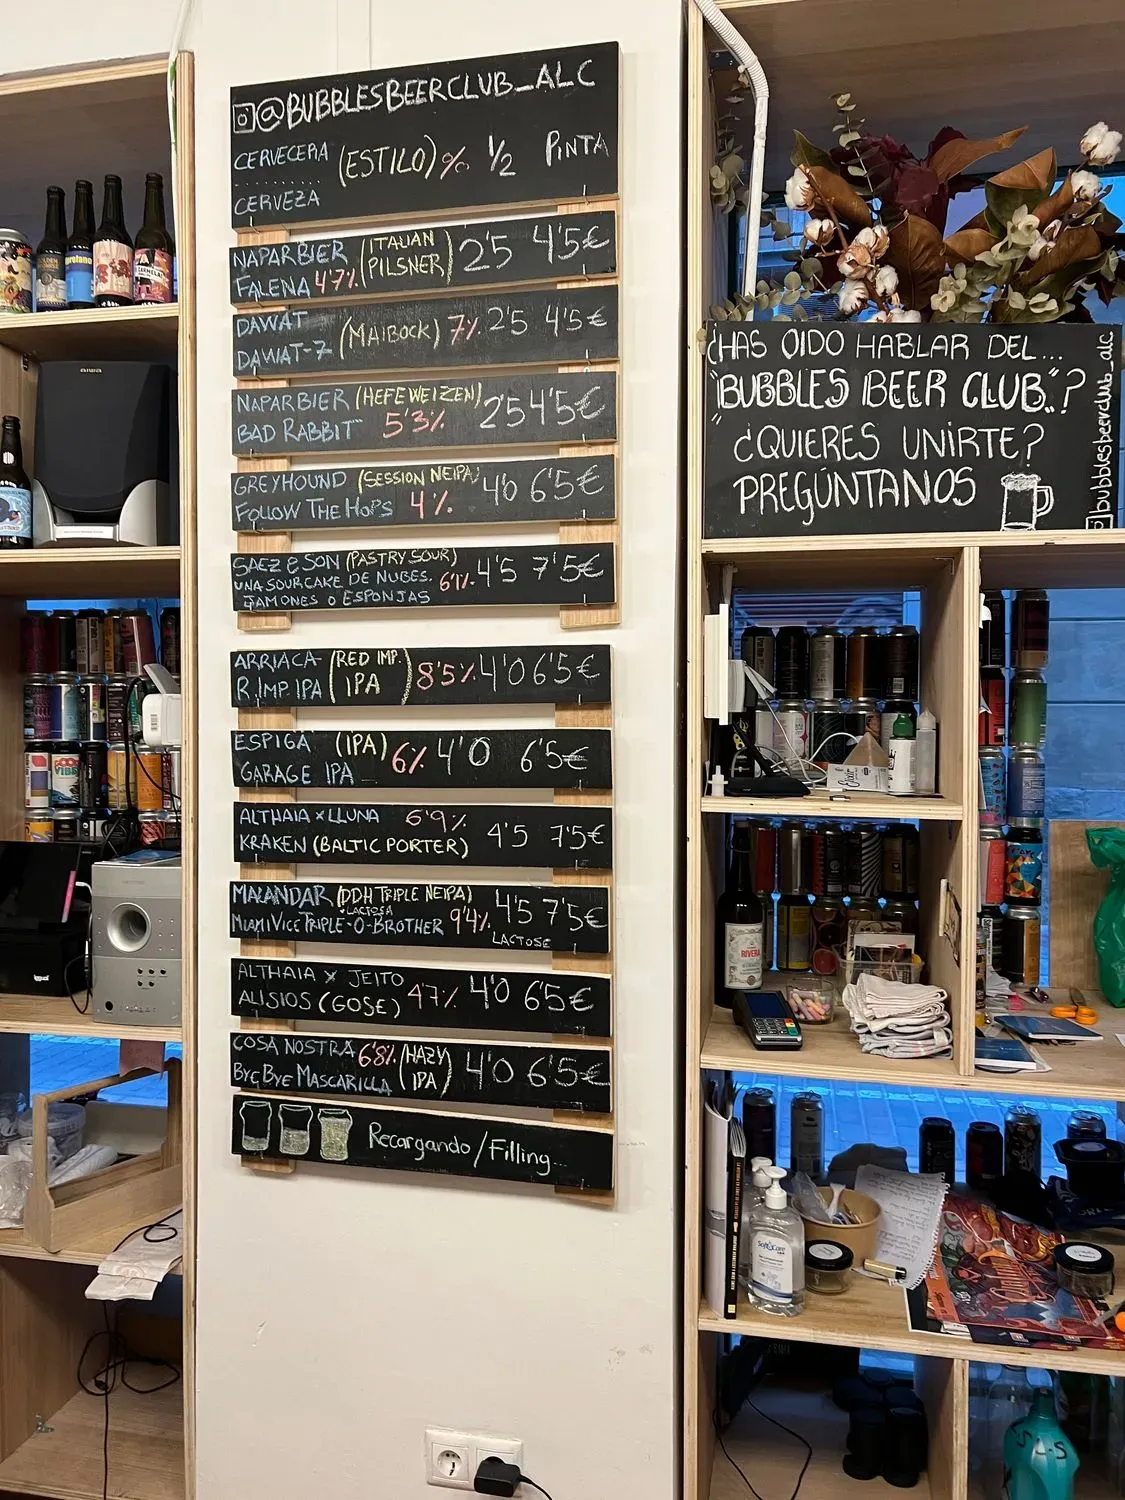 @BUBBLESBEERCLUB_ALC
CERVECERIA (ESTILO) % 1/2 PINTA
CERVEZA
NAPARBIER (ITALIAN PILSNER) 2'5 4'5€
FALENA 4'7%
DAWAT (MAIBOCK) 7% 2'5 4'5€
DAWAT-7
NAPARBIER (HEFEWEIZEN) 2'5 4'5€
BAD RABBIT 5'3%
GREYHOUND (SESSION NEIPA) 4'0 6'5€
FOLLOW THE HOPS 4%
SAEZ & SON (PASTRY SOUR) 4'5 7'5€
UNA SOURCAKE DE NUBES, 6'1%
JAMONES O ESPONJAS
ARRIACA (RED IMP. IPA) 8'5% 4'0 6'5€
R.IMP. IPA
ESPIGA (IPA) 6% 4'0 6'5€
GARAGE IPA
ALTHAIA x LLUNA 6'9%
KRAKEN (BALTIC PORTER) 4'5 7'5€
MALANDAR (DDH TRIPLE NEIPA) 4'5 7'5€
+LACTOSA
MIAMI VICE TRIPLE-O-BROTHER 9'4% LACTOSE
ALTHAIA x JEITO
ALISIOS (GOSE) 4'7% 4'0 6'5€
COSA NOSTRA 6'8% (HAZY IPA) 4'0 6'5€
BYE BYE MASCARILLA
Recargando/Filling...
¿HAS OIDO HABLAR DEL...
"BUBBLES BEER CLUB"?
¿QUIERES UNIRTE?
PREGÚNTANOS
@bubblesbeerclub_alc
aiwa
RIVERA
Soft Care